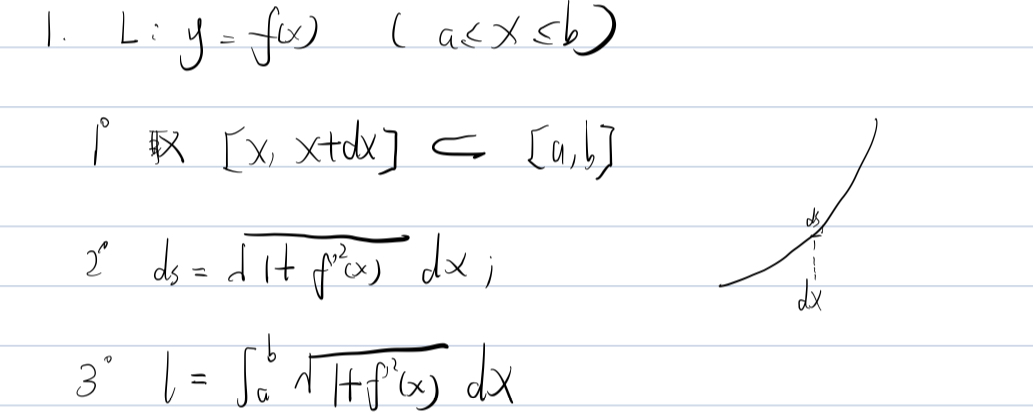 1. L: y = f(x) (a≤x≤b)
1° 取 [x, x+dx] ⊂ [a,b]
2° ds = √(1+f'²(x)) dx;
3° l = ∫ₐᵇ √(1+f'²(x)) dx
ds
dx